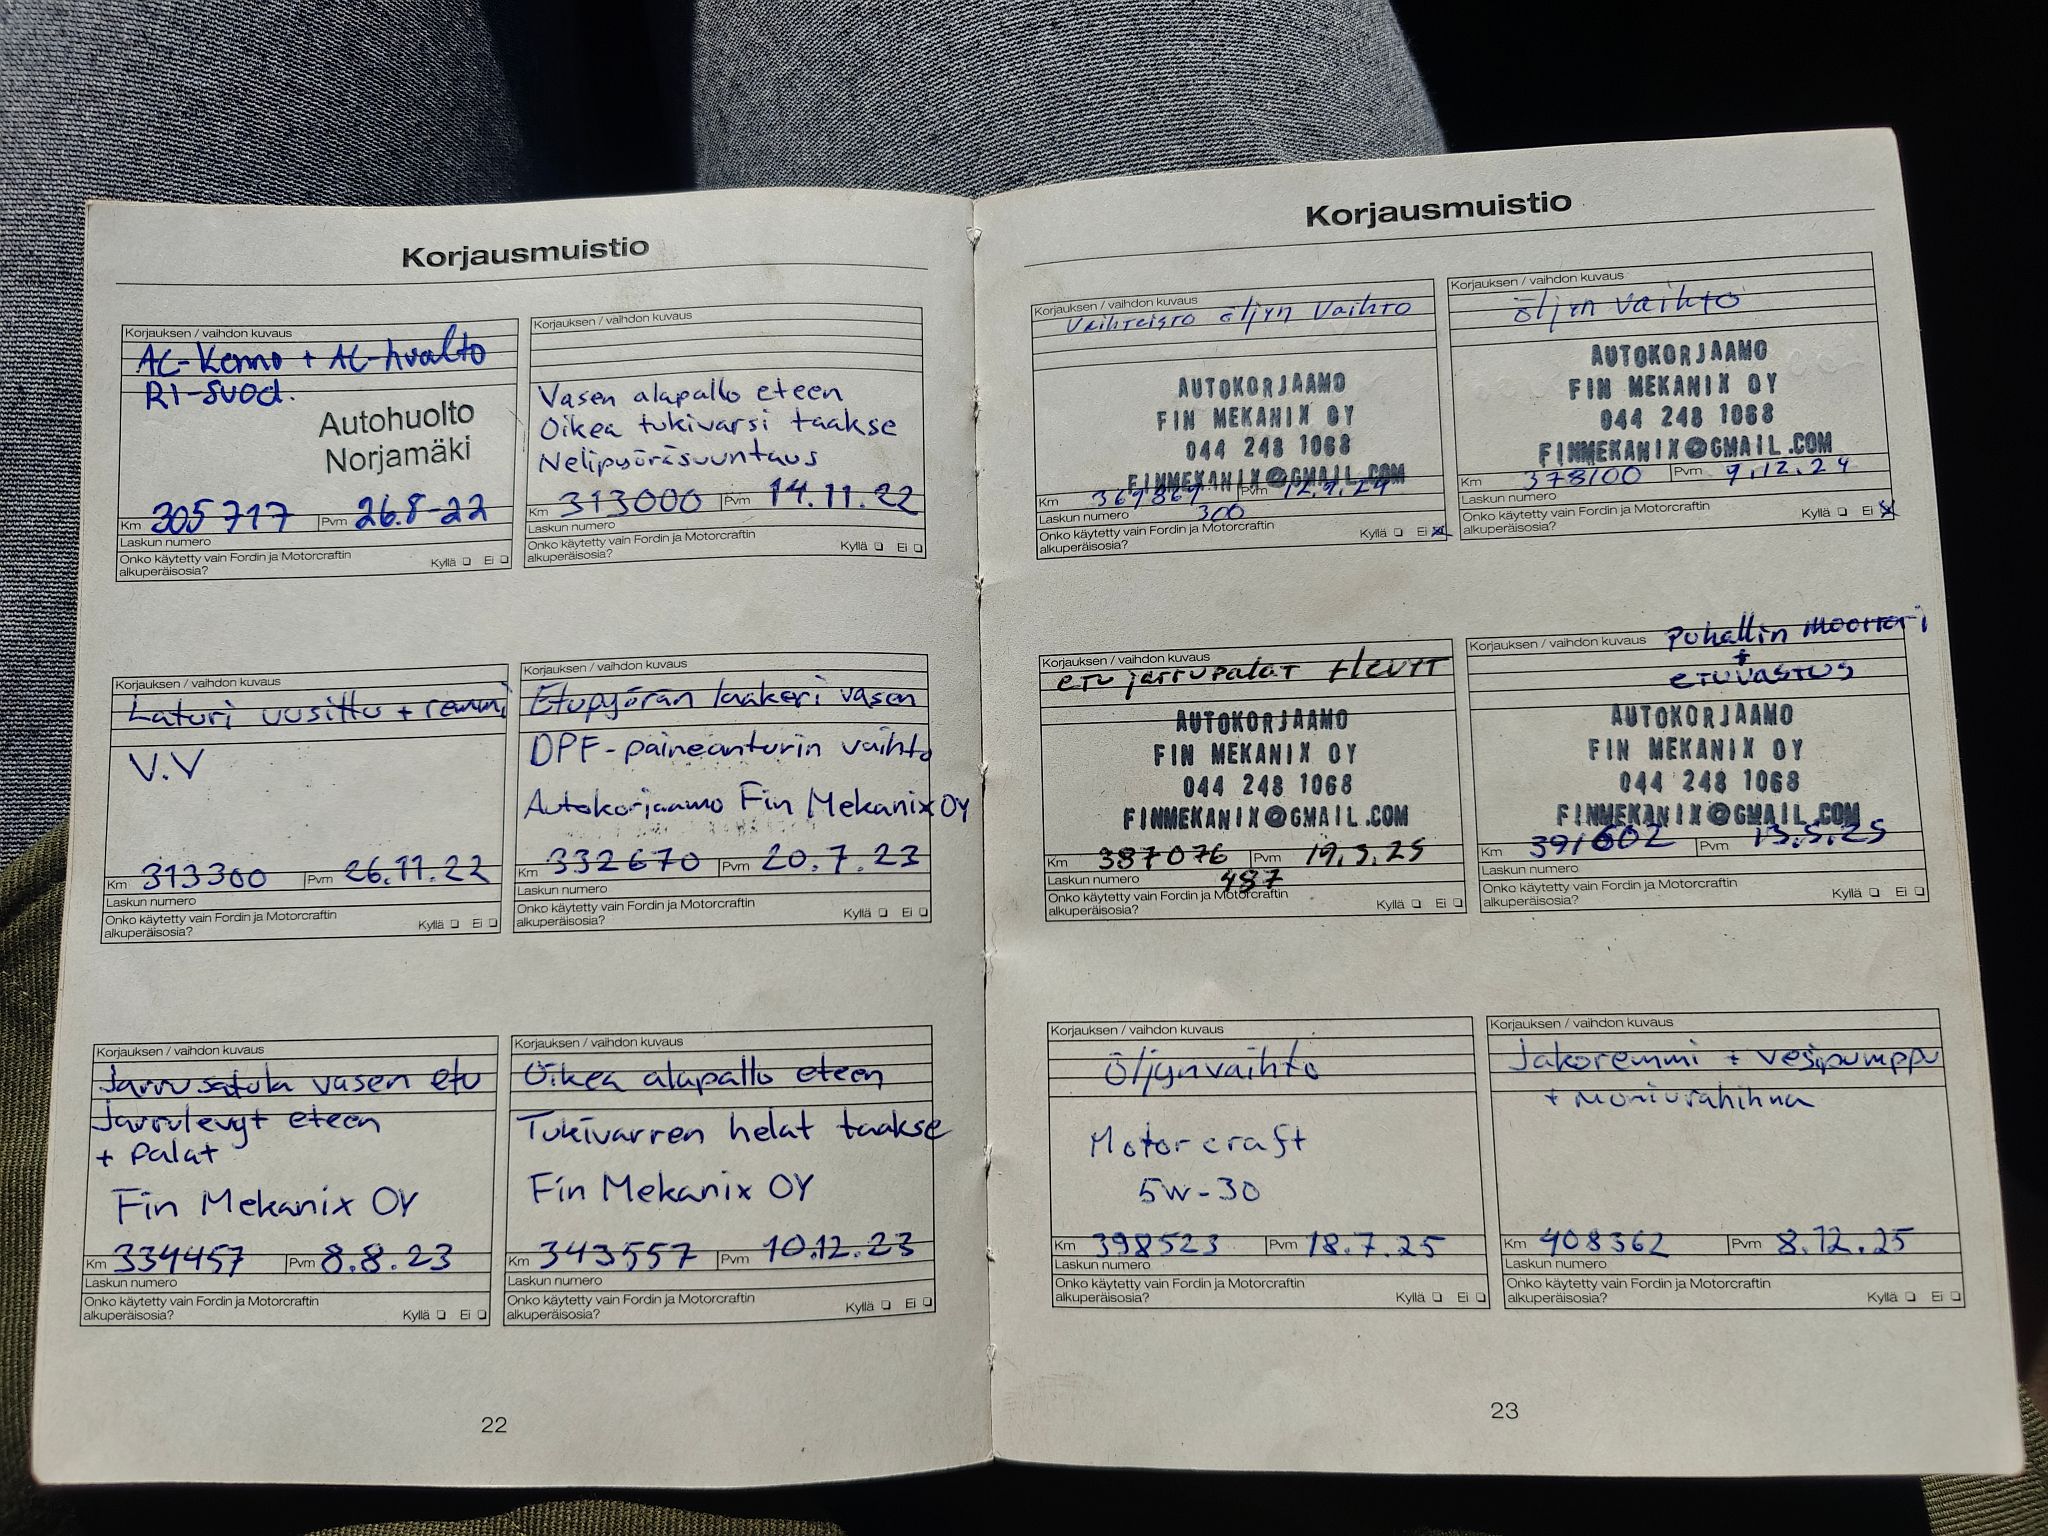 Korjausmuistio
Korjauksen / vaihdon kuvaus
AC-Kenno + AC-huolto
RI-suod.
Autohuolto
Norjamäki
Km 305717 Pvm 26.8-22
Laskun numero
Onko käytetty vain Fordin ja Motorcraftin
alkuperäisosia? Kyllä Ei
Korjauksen / vaihdon kuvaus
Vasen alapallo eteen
Oikea tukivarsi taakse
Nelipyöräsuuntaus
Km 313000 Pvm 14.11.22
Laskun numero
Onko käytetty vain Fordin ja Motorcraftin
alkuperäisosia? Kyllä Ei
Korjauksen / vaihdon kuvaus
Laturi uusittu + remmi
V.V
Km 313300 Pvm 26.11.22
Laskun numero
Onko käytetty vain Fordin ja Motorcraftin
alkuperäisosia? Kyllä Ei
Korjauksen / vaihdon kuvaus
Etupyörän laakeri vasen
DPF-paineanturin vaihto
Autokorjaamo Fin Mekanix OY
Km 332670 Pvm 20.7.23
Laskun numero
Onko käytetty vain Fordin ja Motorcraftin
alkuperäisosia? Kyllä Ei
Korjauksen / vaihdon kuvaus
Jarrusatula vasen etu
Jarrulevyt eteen
+ Palat
Fin Mekanix OY
Km 334457 Pvm 8.8.23
Laskun numero
Onko käytetty vain Fordin ja Motorcraftin
alkuperäisosia? Kyllä Ei
Korjauksen / vaihdon kuvaus
Oikea alapallo eteen
Tukivarren helat taakse
Fin Mekanix OY
Km 343557 Pvm 10.12.23
Laskun numero
Onko käytetty vain Fordin ja Motorcraftin
alkuperäisosia? Kyllä Ei
22
Korjausmuistio
Korjauksen / vaihdon kuvaus
Vaihteisto öljyn vaihto
AUTOKORJAAMO
FIN MEKANIX OY
044 248 1068
FINMEKANIX@GMAIL.COM
Km Pvm 12.9.24
Laskun numero 300
Onko käytetty vain Fordin ja Motorcraftin
alkuperäisosia? Kyllä Ei
Korjauksen / vaihdon kuvaus
öljyn vaihto
AUTOKORJAAMO
FIN MEKANIX OY
044 248 1068
FINMEKANIX@GMAIL.COM
Km 378100 Pvm 9.12.24
Laskun numero
Onko käytetty vain Fordin ja Motorcraftin
alkuperäisosia? Kyllä Ei
Korjauksen / vaihdon kuvaus
etu jarrupalat
AUTOKORJAAMO
FIN MEKANIX OY
044 248 1068
FINMEKANIX@GMAIL.COM
Km 387076 Pvm 19.3.25
Laskun numero 487
Onko käytetty vain Fordin ja Motorcraftin
alkuperäisosia? Kyllä Ei
Korjauksen / vaihdon kuvaus puhallin moottori
+
etuvastus
AUTOKORJAAMO
FIN MEKANIX OY
044 248 1068
FINMEKANIX@GMAIL.COM
Km 391602 Pvm 13.5.25
Laskun numero
Onko käytetty vain Fordin ja Motorcraftin
alkuperäisosia? Kyllä Ei
Korjauksen / vaihdon kuvaus
Öljynvaihto
Motorcraft
5W-30
Km 398523 Pvm 18.7.25
Laskun numero
Onko käytetty vain Fordin ja Motorcraftin
alkuperäisosia? Kyllä Ei
Korjauksen / vaihdon kuvaus
Jakoremmi + vesipumppu
+ moniurahihna
Km 408362 Pvm 8.12.25
Laskun numero
Onko käytetty vain Fordin ja Motorcraftin
alkuperäisosia? Kyllä Ei
23